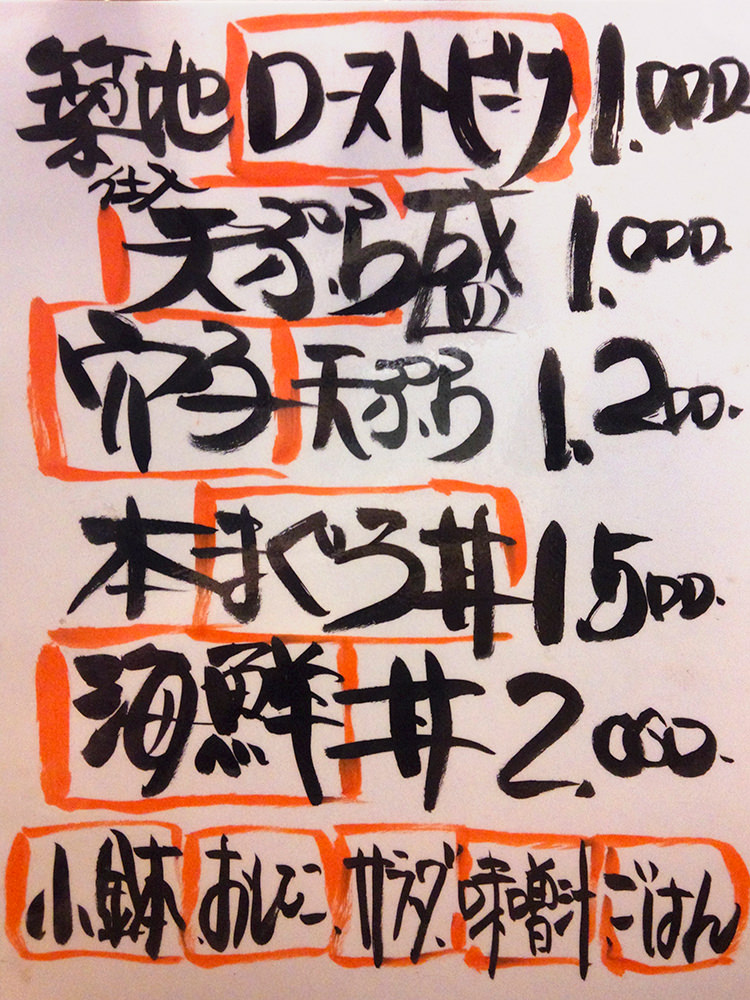 築地ローストビーフ 1.000
仕入
天ぷら盛 1.000.
穴子天ぷら 1.200.
本まぐろ丼 1500.
海鮮丼 2.000.
小鉢.おしんこ.サラダ.味噌汁.ごはん